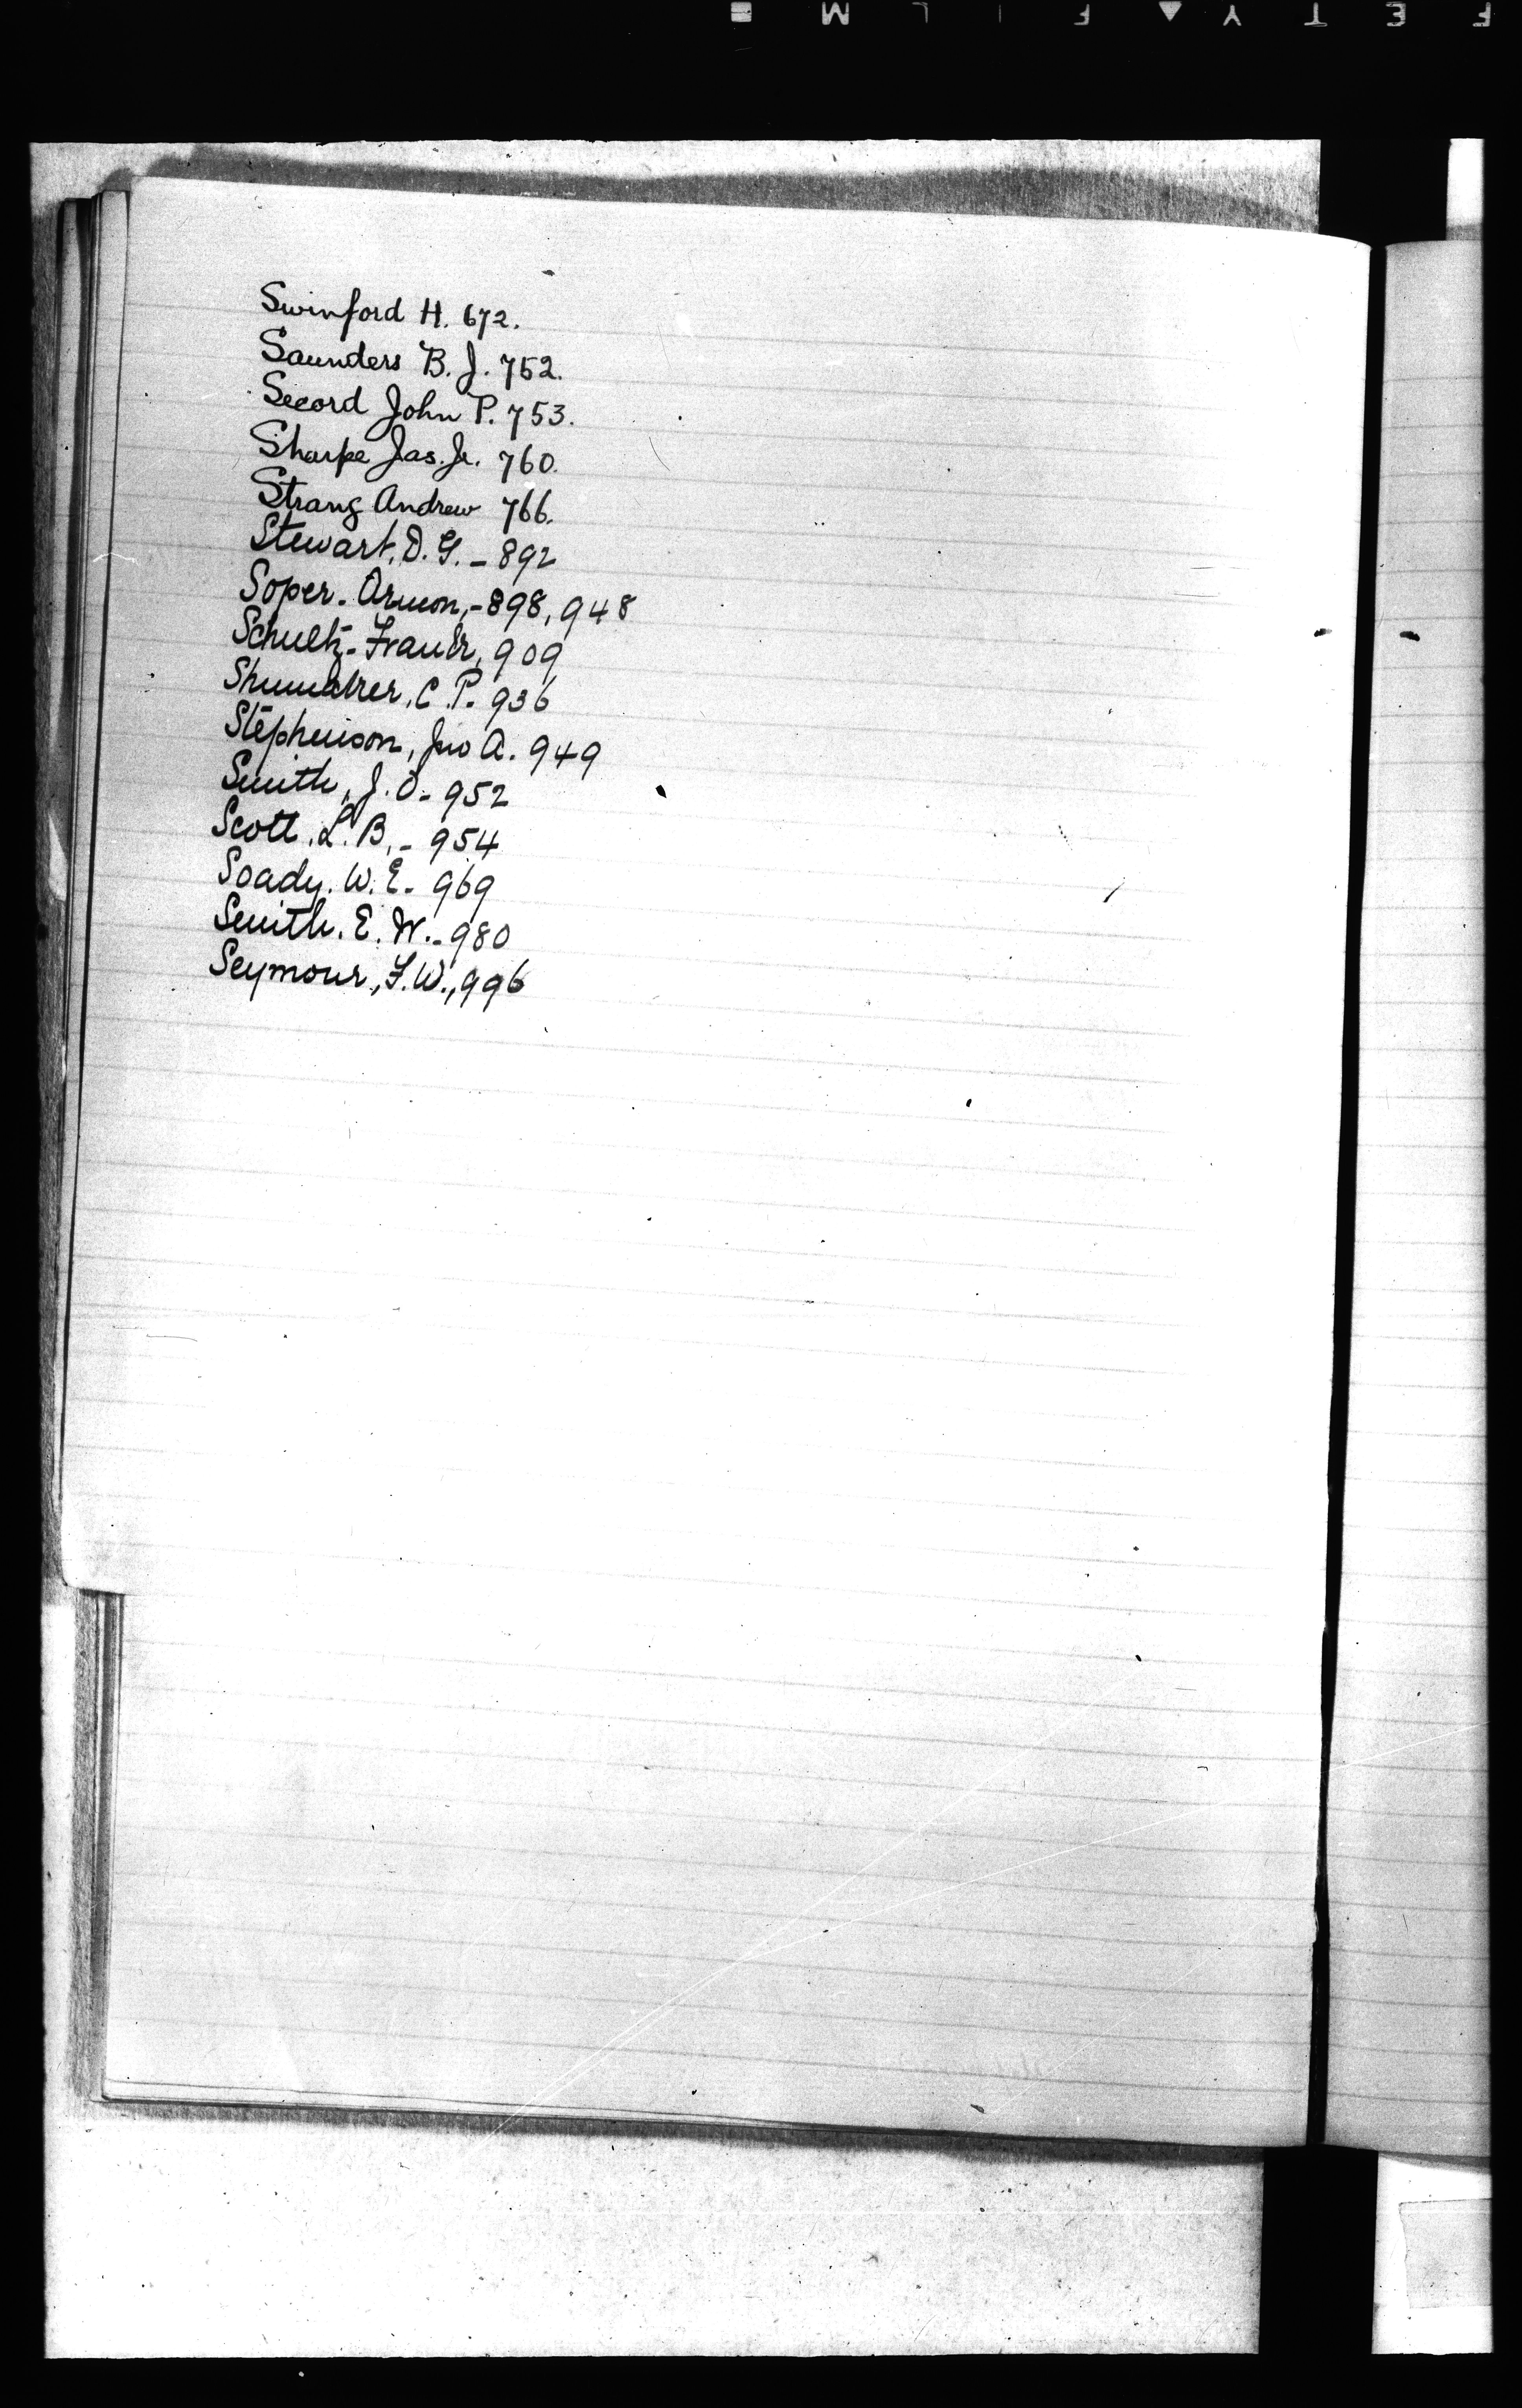 Swinford H. 672.
Saunders B. J. 752.
Secord John P. 753.
Sharpe Jas. Jr. 760.
Strang Andrew 766.
Stewart, D. G. - 892
Soper. Ormon, - 898, 948
Schultz - Frank, 909
Shumaker, C. P. 936
Stephenson, Jno A. 949
Smith, J. O - 952
Scott. L. B, - 954
Soady. W. E - 969
Smith. E. W. - 980
Seymour, F. W., 996